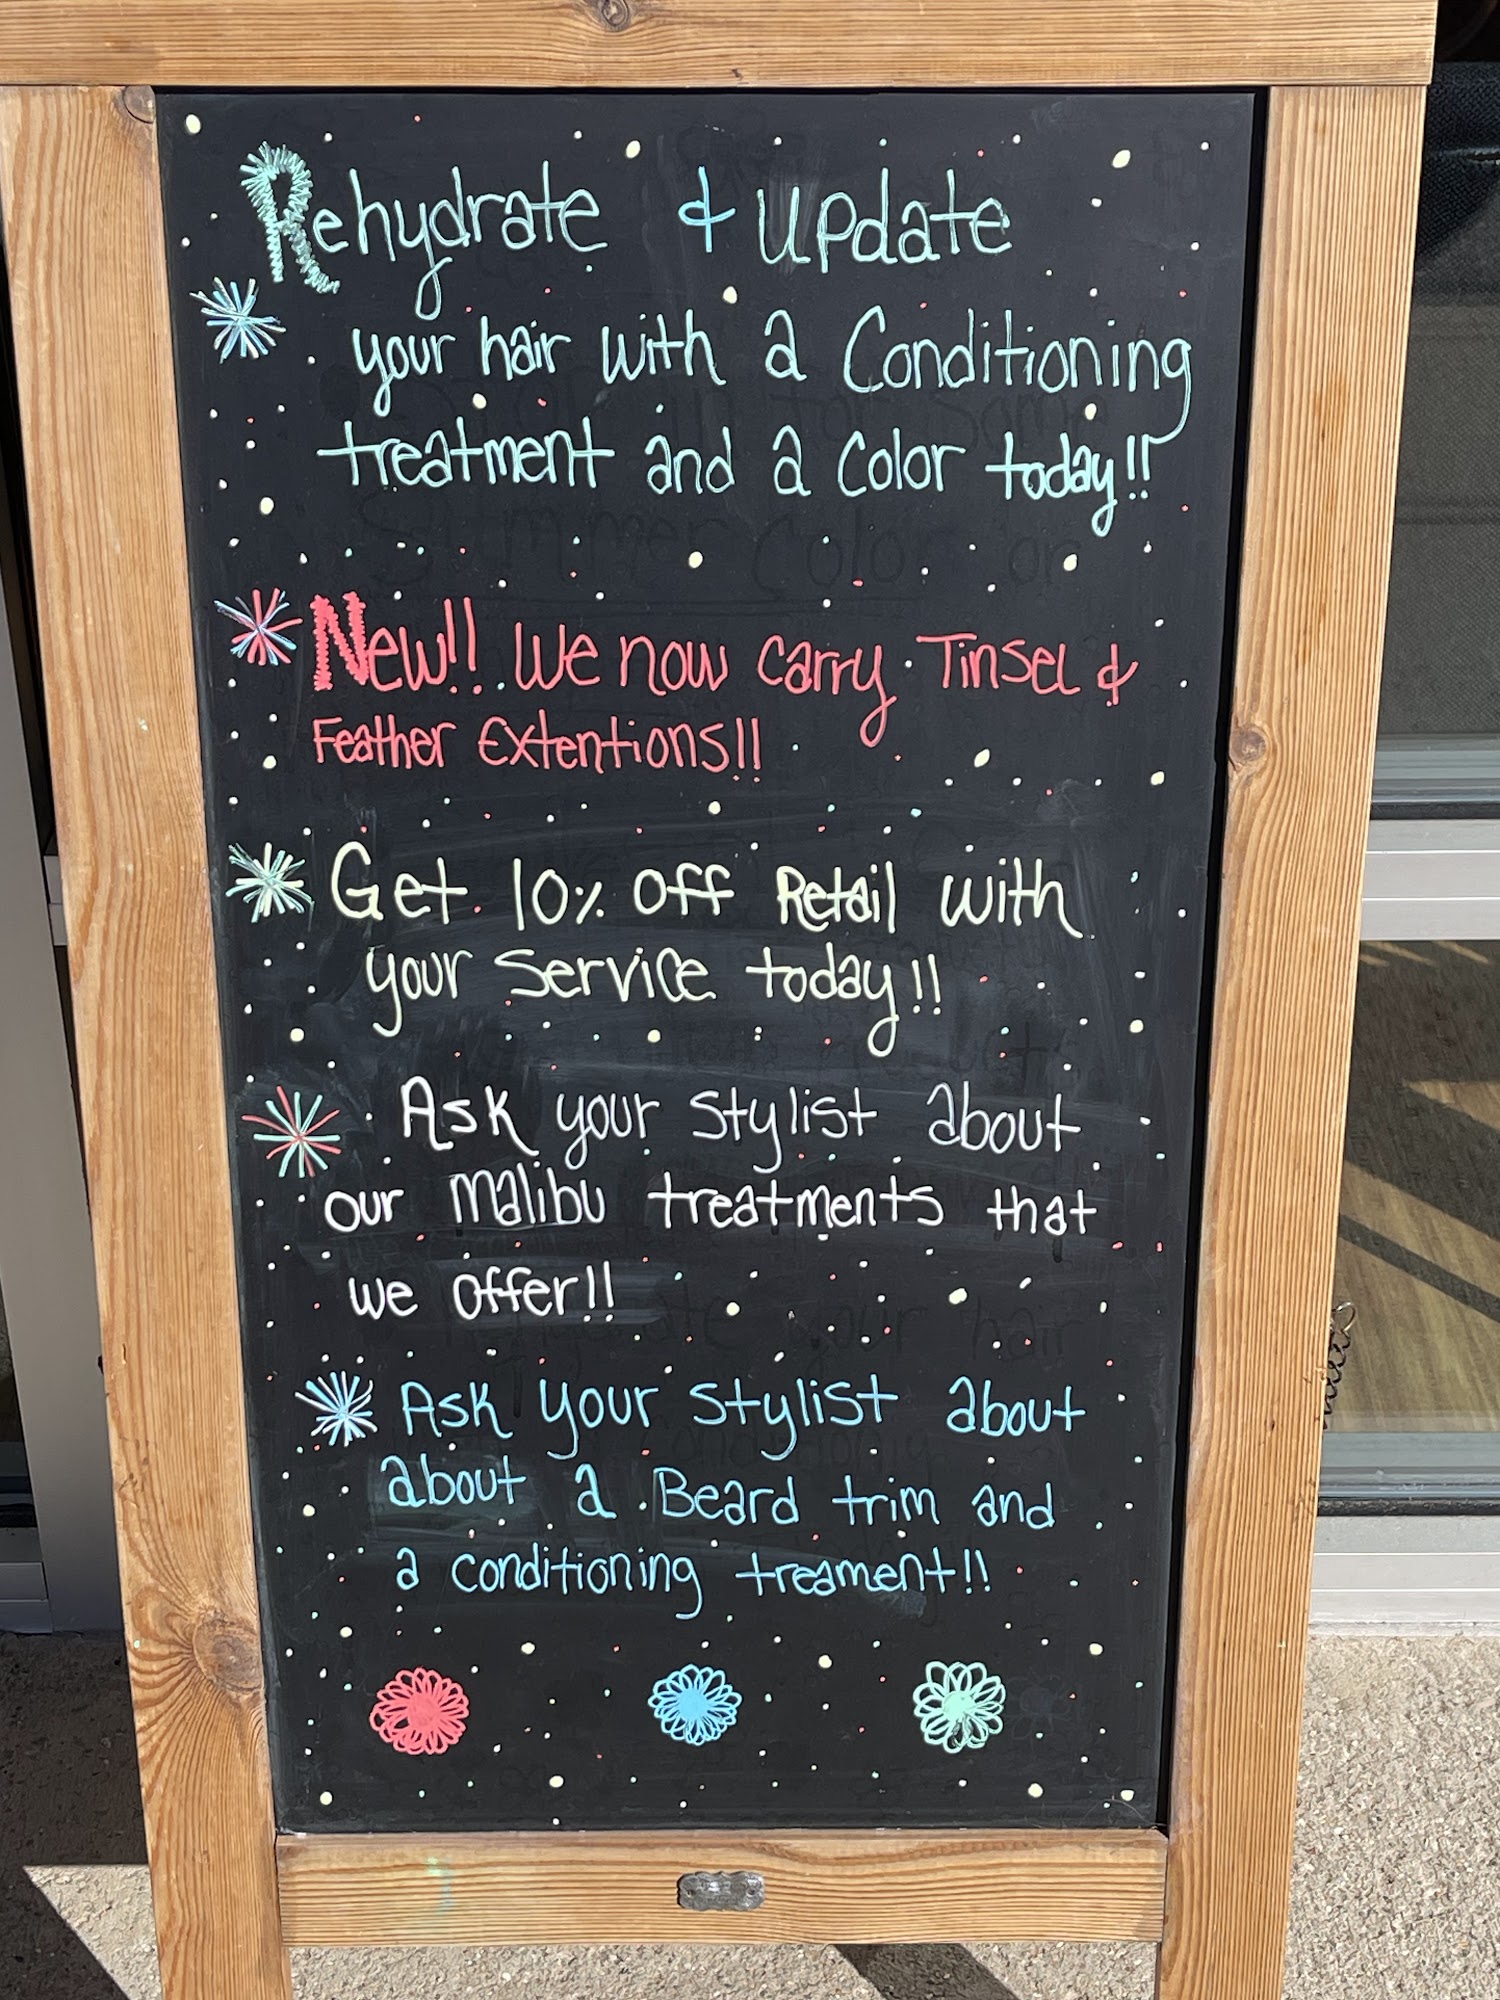 Rehydrate & update
your hair with a Conditioning
treatment and a color today!!
New!! We now carry Tinsel &
Feather Extentions!!
Get 10% off Retail with
your service today!!
Ask your stylist about
our malibu treatments that
we offer!!
Ask your stylist about
about a Beard trim and
a conditioning treament!!